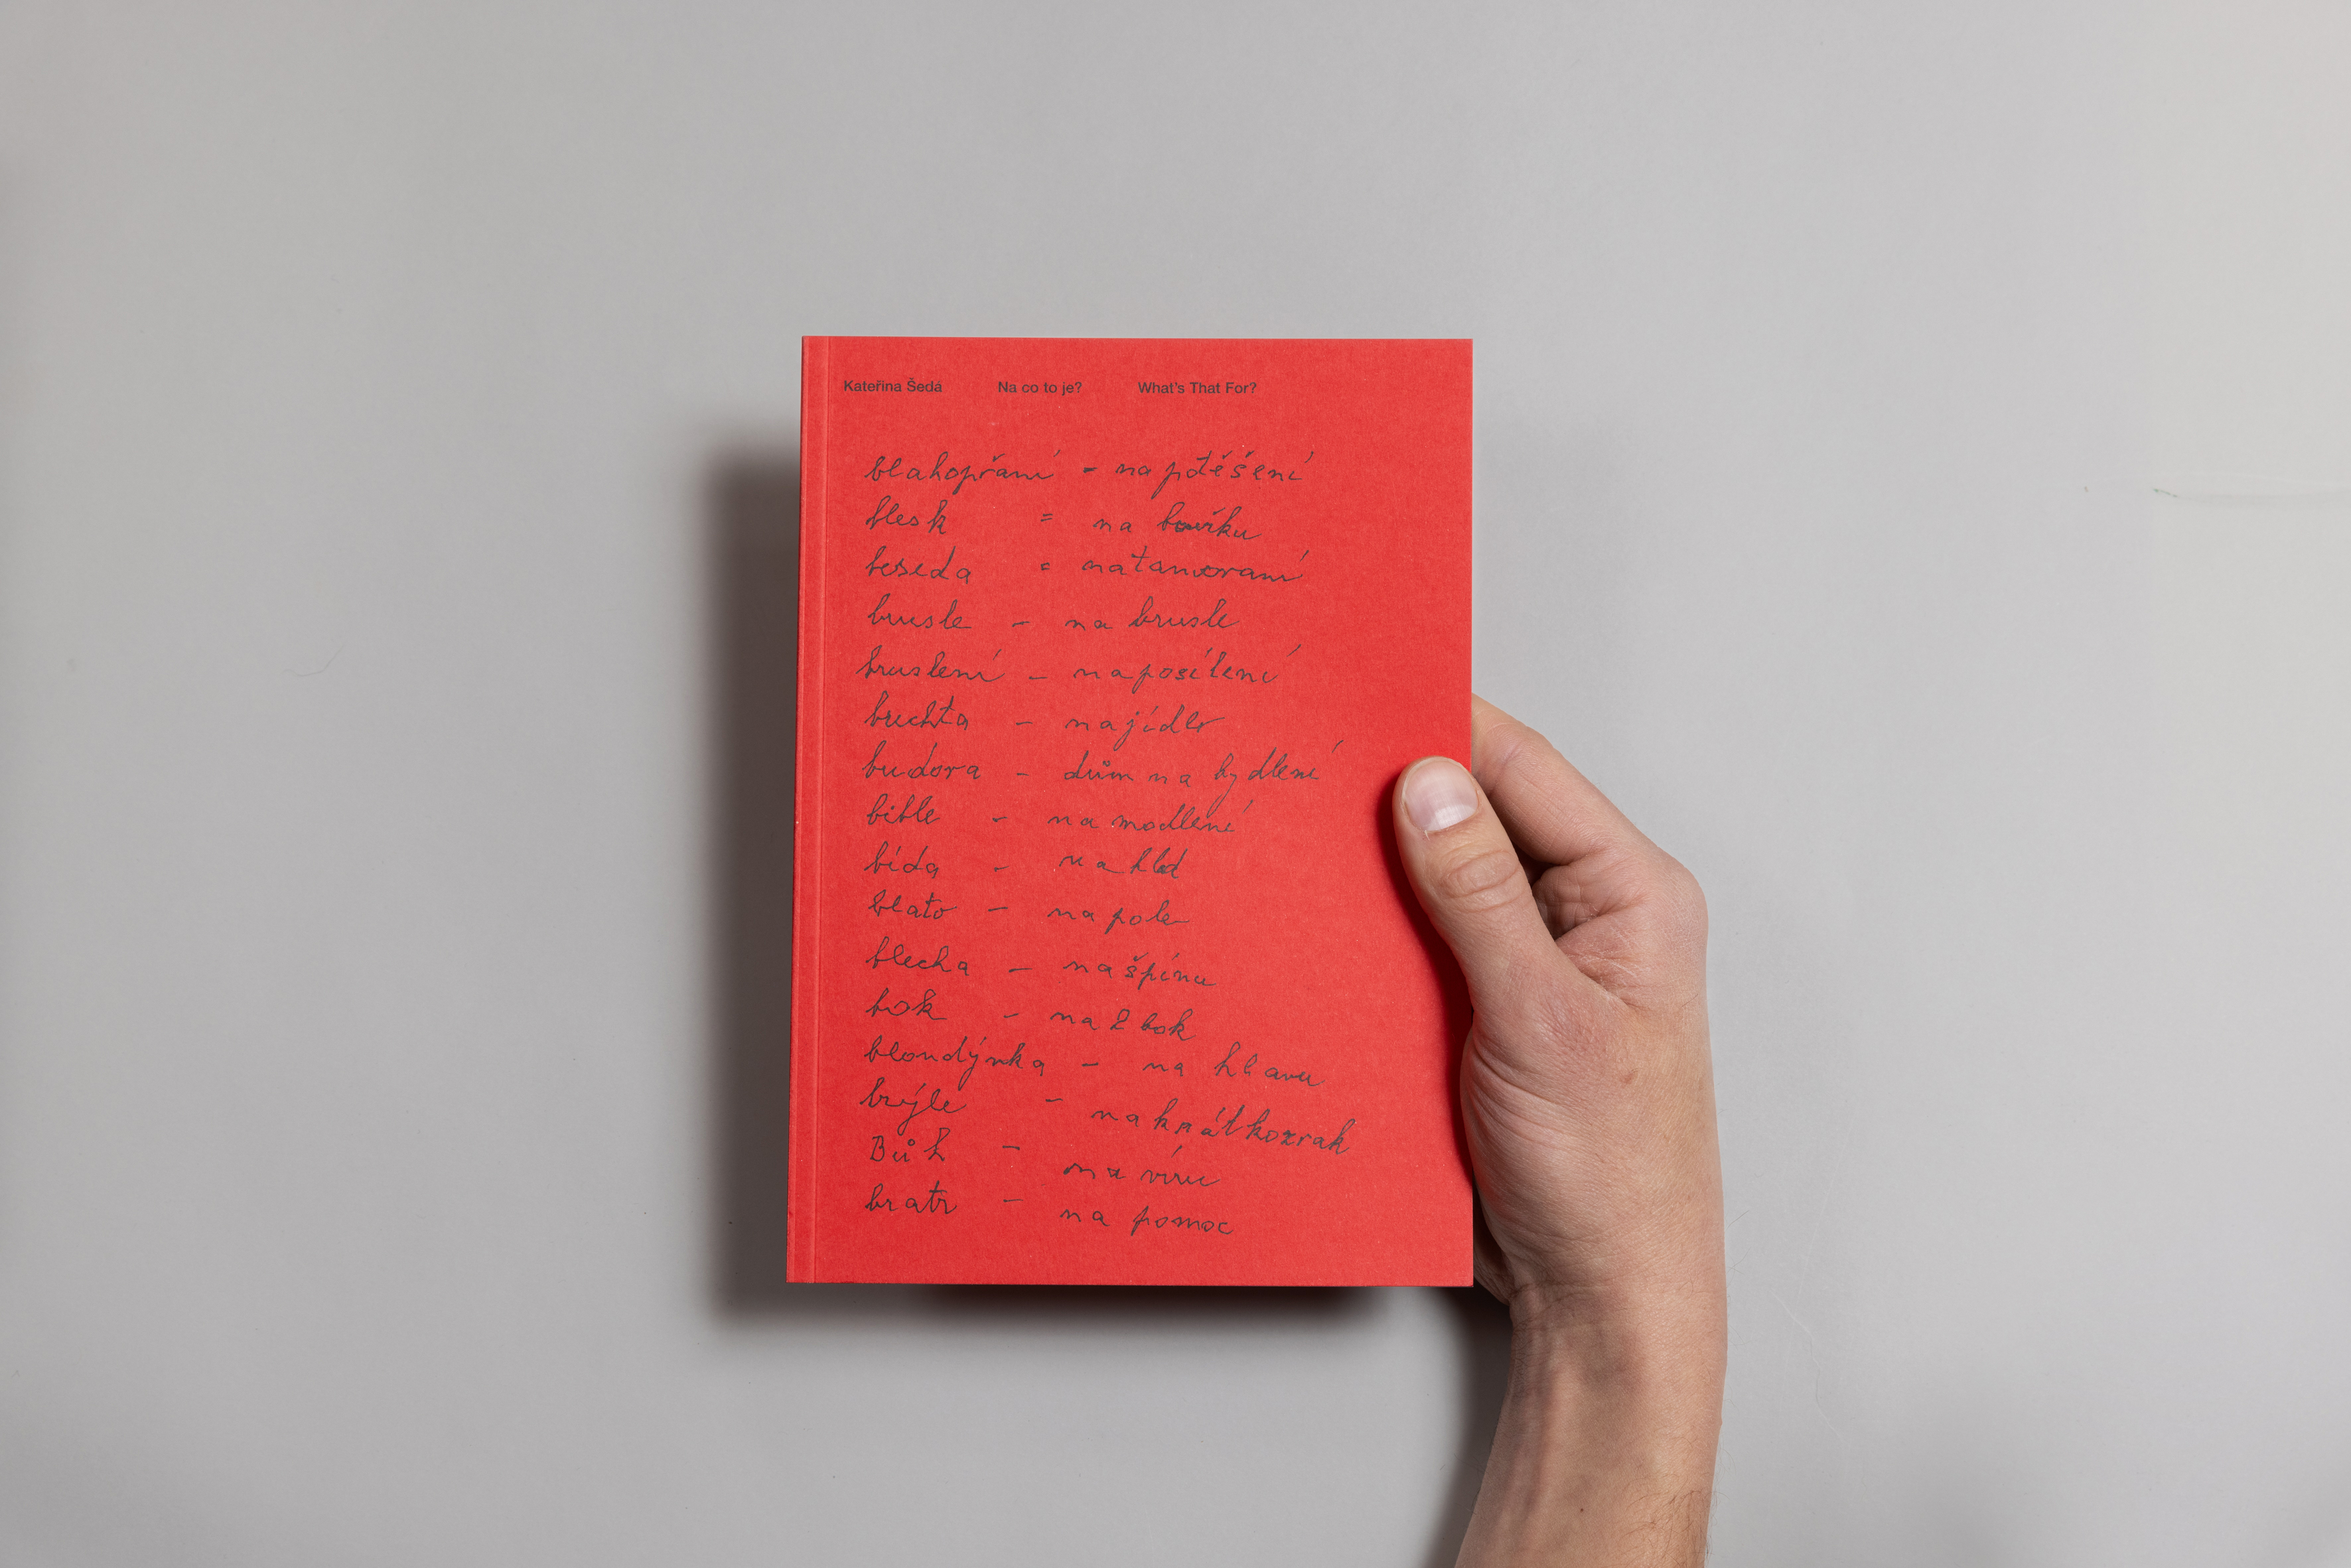 Kateřina Šedá Na co to je? What's That For?
blahopřaní - na potěšení
blesk = na bouřku
beseda = na tancovaní
brusle - na brusle
bruslení - na posílení
buchta - na jídlo
budova - dům na bydlení
bible - na modlení
bída - na hlad
blato - na pole
blecha - na špínu
bok - na 2 bok
blondýnka - na hlavu
brýle - na krátkozrak
Bůh - na víru
bratr - na pomoc